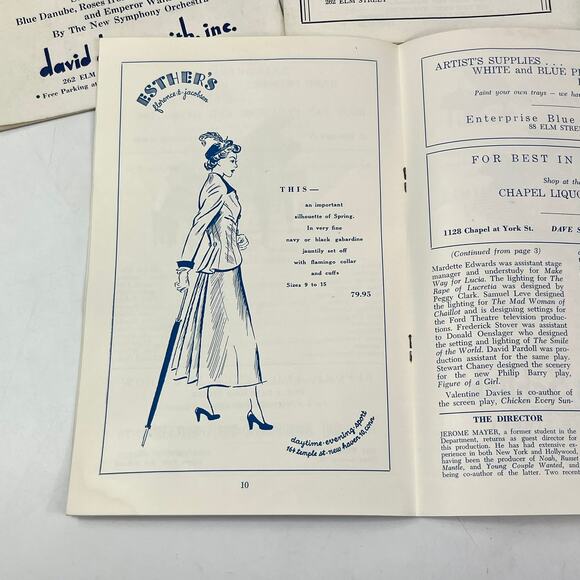 Blue Danube, Roses
and Emperor
By The New Symphony Orchestra
david inc.
262 ELM
• Free Parking at
262 ELM STREET
ESTHER'S
florence t. jacobsen
THIS—
an important
silhouette of Spring.
In very fine
navy or black gabardine
jauntily set off
with flamingo collar
and cuffs
Sizes 9 to 15
79.95
daytime · evening · sport
164 temple st · new haven 10, conn
10
ARTIST'S SUPPLIES . . .
WHITE and BLUE
Paint your own trays — we
Enterprise Blue
88 ELM
FOR BEST IN
Shop at
CHAPEL
1128 Chapel at York St. DAVE
(Continued from page 3)
Mardette Edwards was assistant stage
manager and understudy for Make
Way for Lucia. The lighting for The
Rape of Lucretia was designed by
Peggy Clark. Samuel Leve designed
the lighting for The Mad Woman of
Chaillot and is designing settings for
the Ford Theatre television produc-
tions. Frederick Stover was assistant
to Donald Oenslager who designed
the setting and lighting of The Smile
of the World. David Pardoll was pro-
duction assistant for the same play.
Stewart Chaney designed the scenery
for the new Philip Barry play,
Figure of a Girl.
Valentine Davies is co-author of
the screen play, Chicken Every Sun-
THE DIRECTOR
JEROME MAYER, a former student in the
Department, returns as guest director for
this production. He has had extensive ex-
perience in both New York and Hollywood,
having been the producer of Noah, Russet
Mantle, and Young Couple Wanted, and
being co-author of the latter. Two recent